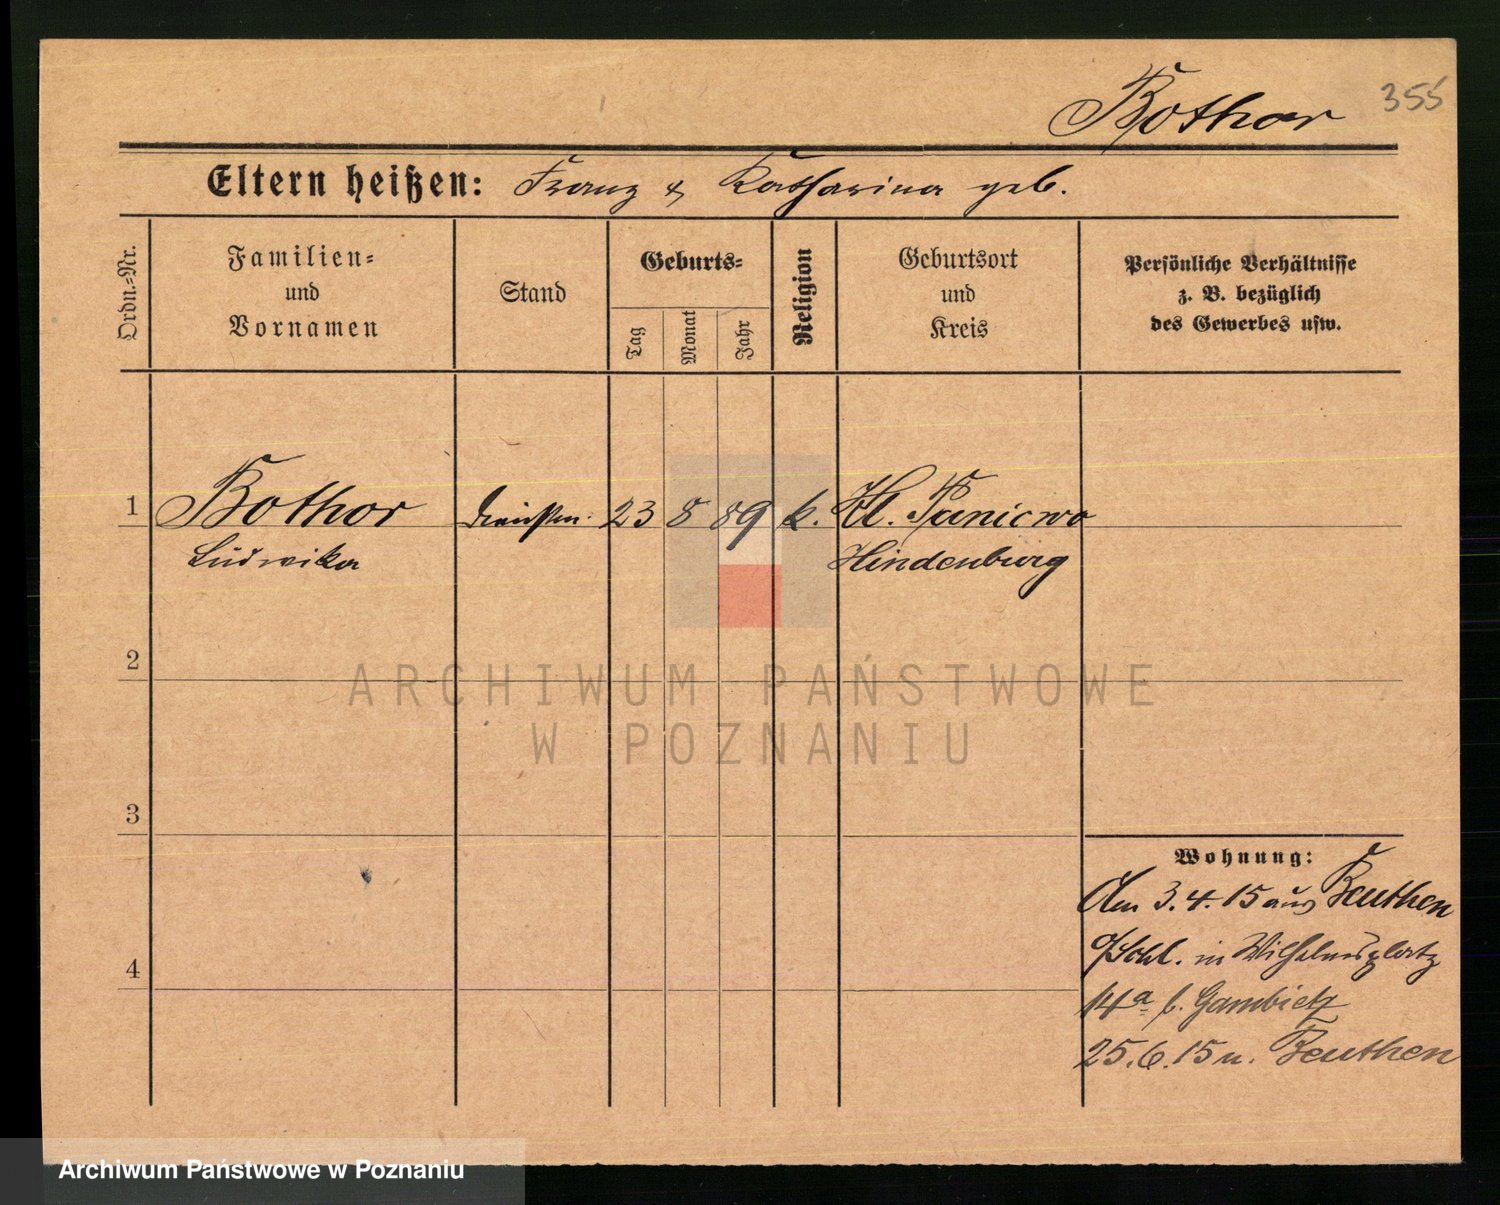 Bothor 355
Eltern heißen: Franz & Katharina geb.
Ordn.-Nr.
Familien-
und
Vornamen
Stand
Geburts-
Tag
Monat
Jahr
Religion
Geburtsort
und
Kreis
Persönliche Verhältnisse
z. B. bezüglich
des Gewerbes usw.
1 Bothor 23 8 89 k. Kl. Panicwo
Ludwika Hindenburg
2
3
4
Wohnung:
Am 3.4.15 aus Beuthen
O/Schl. in Wilhelmsplatz
14a b. Gambietz
25.6.15 n. Beuthen
ARCHIWUM PAŃSTWOWE
W POZNANIU
Archiwum Państwowe w Poznaniu